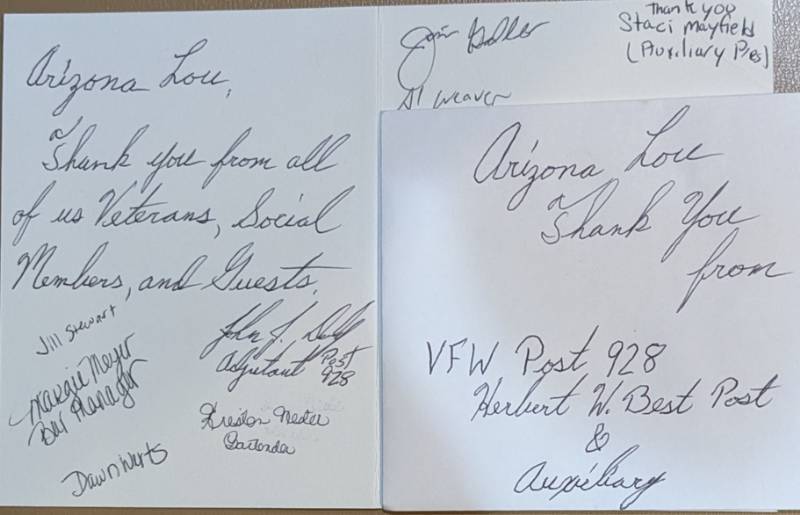 Arizona Lou,
Thank you from all
of us Veterans, Social
Members, and Guests.
Jill Stewart
Margie Meyer
Bar Manager
Dawn Wertz
John J.
Adjutant Post
928
Bartender
Jim
Al Weaver
Thank you
Staci Mayfield
(Auxiliary Pres)
Arizona Lou
Thank You
from
VFW Post 928
Herbert W. Best Post
&
Auxiliary